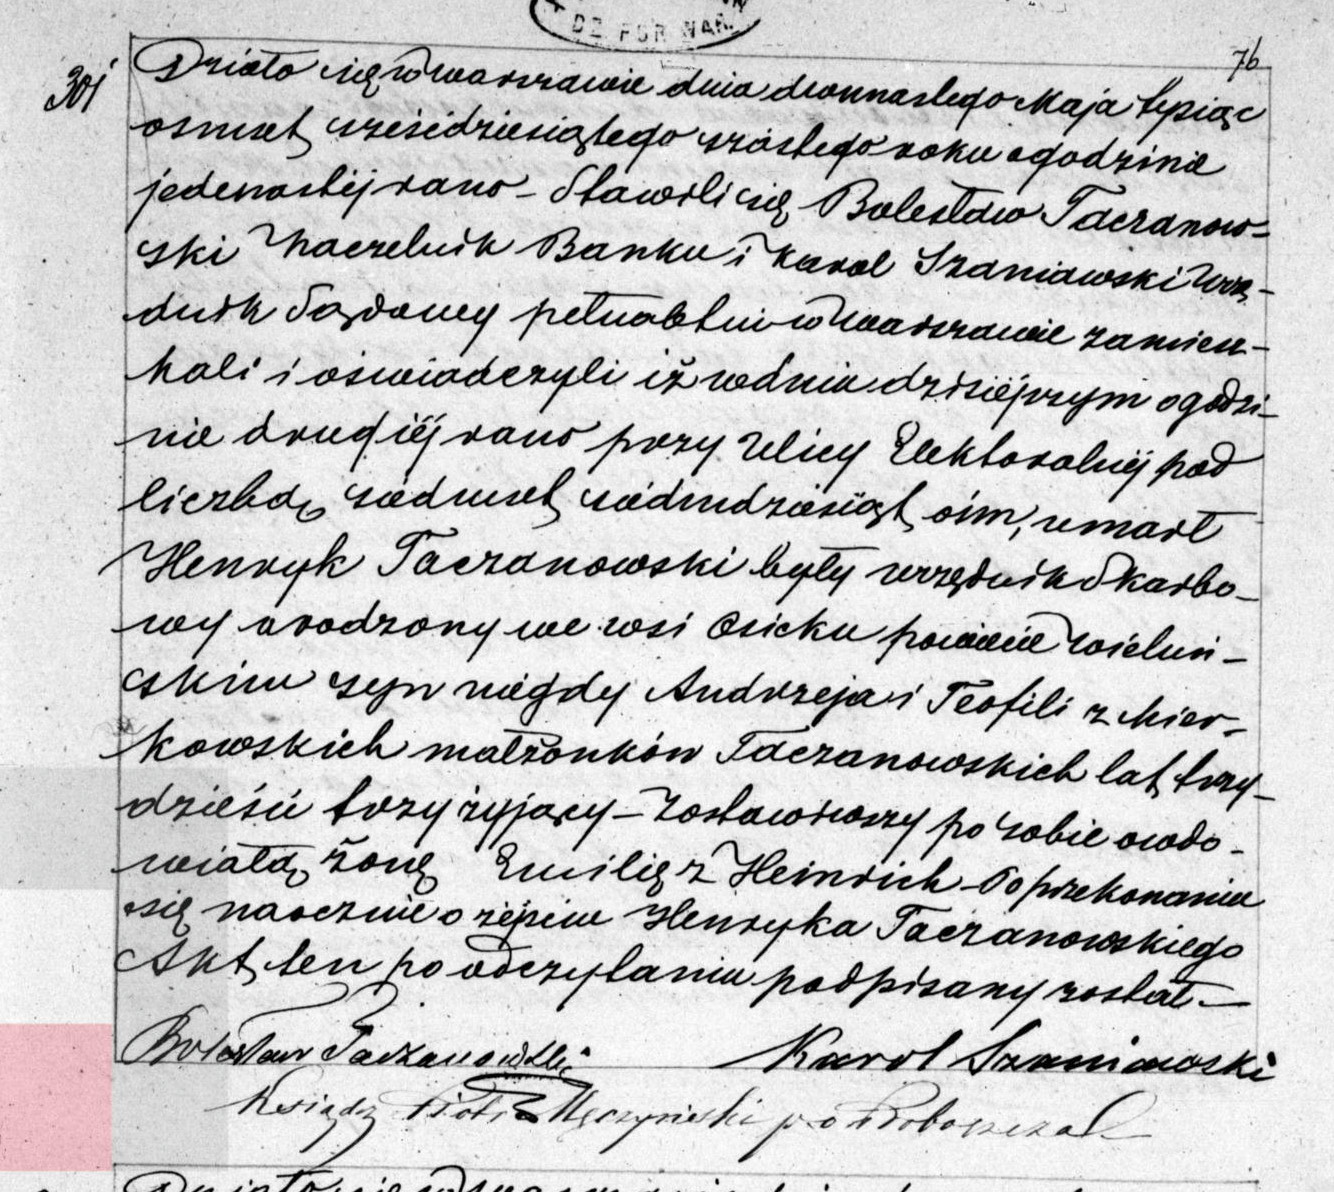 DZ FOR WAR.
76
301
Działo się w Warszawie dnia dwunastego Maja tysiąc
osmset sześćdziesiątego szóstego roku o godzinie
jedenastéj rano – Stawili się Bolesław Taczanow-
ski Naczelnik Banku i Karol Szaniawski Urzę-
dnik Sądowy pełnoletni w Warszawie zamiesz-
kali i oświadczyli iż w dniu dzisiéjszym o godzi-
nie drugiéj rano przy Ulicy Elektoralnéj pod
liczbą siedmset siedmdziesiąt ośm, umarł
Henryk Taczanowski były urzędnik Skarbo-
wy urodzony we wsi Osicku powiecie Wieluń-
skim syn niegdy Andrzeja i Teofili z Mier-
kowskich małżonków Taczanowskich lat trzy-
dzieści trzy żyjący – Zostawiwszy po sobie owdo-
wiałą żonę Emilię z Heinrich Po przekonaniu
się naocznie o zejściu Henryka Taczanowskiego
Akt ten po odczytaniu podpisany został –
Bolesław Taczanowski Karol Szaniawski
Ksiądz Piotr